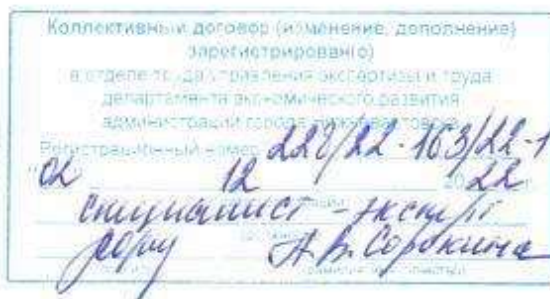 Коллективный договор (изменение, дополнение)
зарегистрирован(о)
в отделе труда управления экспертизы и труда
департамента экономического развития
администрации города Нижневартовска
Регистрационный номер 228/22-163/22-1
"02" 12 2022 г.
специалист - эксперт
А.В. Сорокина